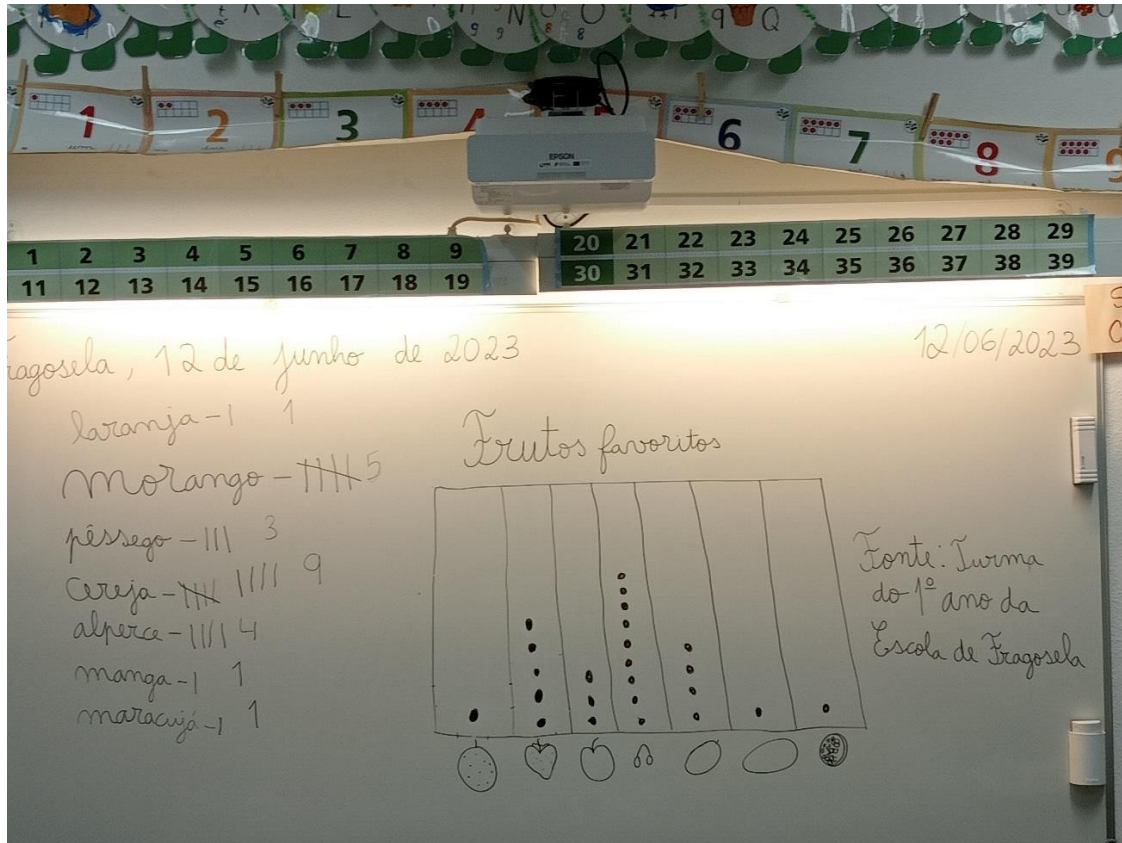 N O
9 9 8 8
q Q
1 2 3 6 7 8 9
EPSON
1 2 3 4 5 6 7 8 9
11 12 13 14 15 16 17 18 19
20 21 22 23 24 25 26 27 28 29
30 31 32 33 34 35 36 37 38 39
ragosela, 12 de junho de 2023
12/06/2023
laranja - | 1
morango - |||| 5
pêssego - ||| 3
cereja - |||| |||| 9
alperce - |||| 4
manga - | 1
maracujá - | 1
Frutos favoritos
Fonte: Turma
do 1º ano da
Escola de Fragosela